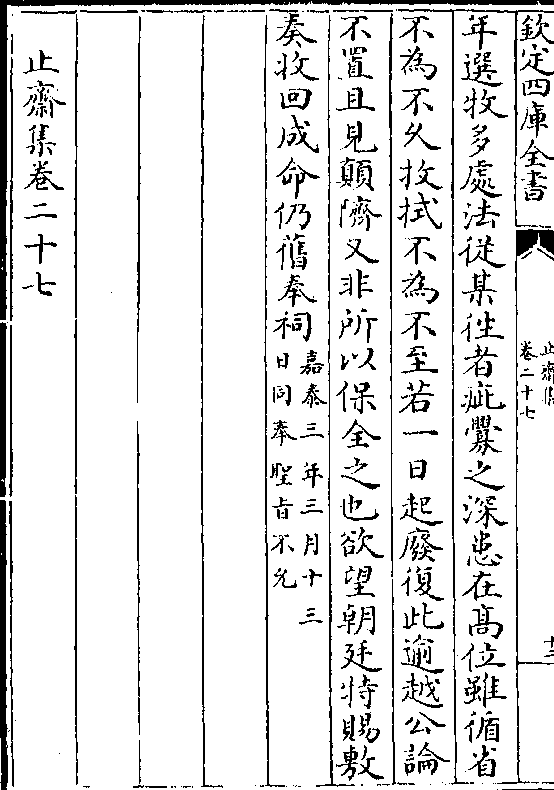 欽定四庫全書
止齋集
卷二十七
十三
年選牧多處法從某徃者疵釁之深患在髙位雖循省
不為不久抆拭不為不至若一日起廢復此逾越公論
不置且見顛隮又非所以保全之也欲望朝廷特賜敷
奏收回成命仍舊奉祠嘉泰三年三月十三
日同奉聖旨不允
止齋集卷二十七